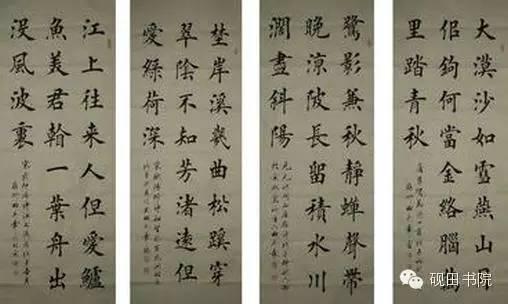 大漠沙如雪燕山
佀鉤何當金絡腦
里踏青秋
鷺影兼秋靜蟬聲帶
晚涼陂長留積水川
濶盡斜陽
埜岸溪幾曲松蹊穿
翠陰不知芳渚遠但
愛綠荷深
江上往来人但愛鱸
魚美君看一葉舟出
没風波裏
砚田书院